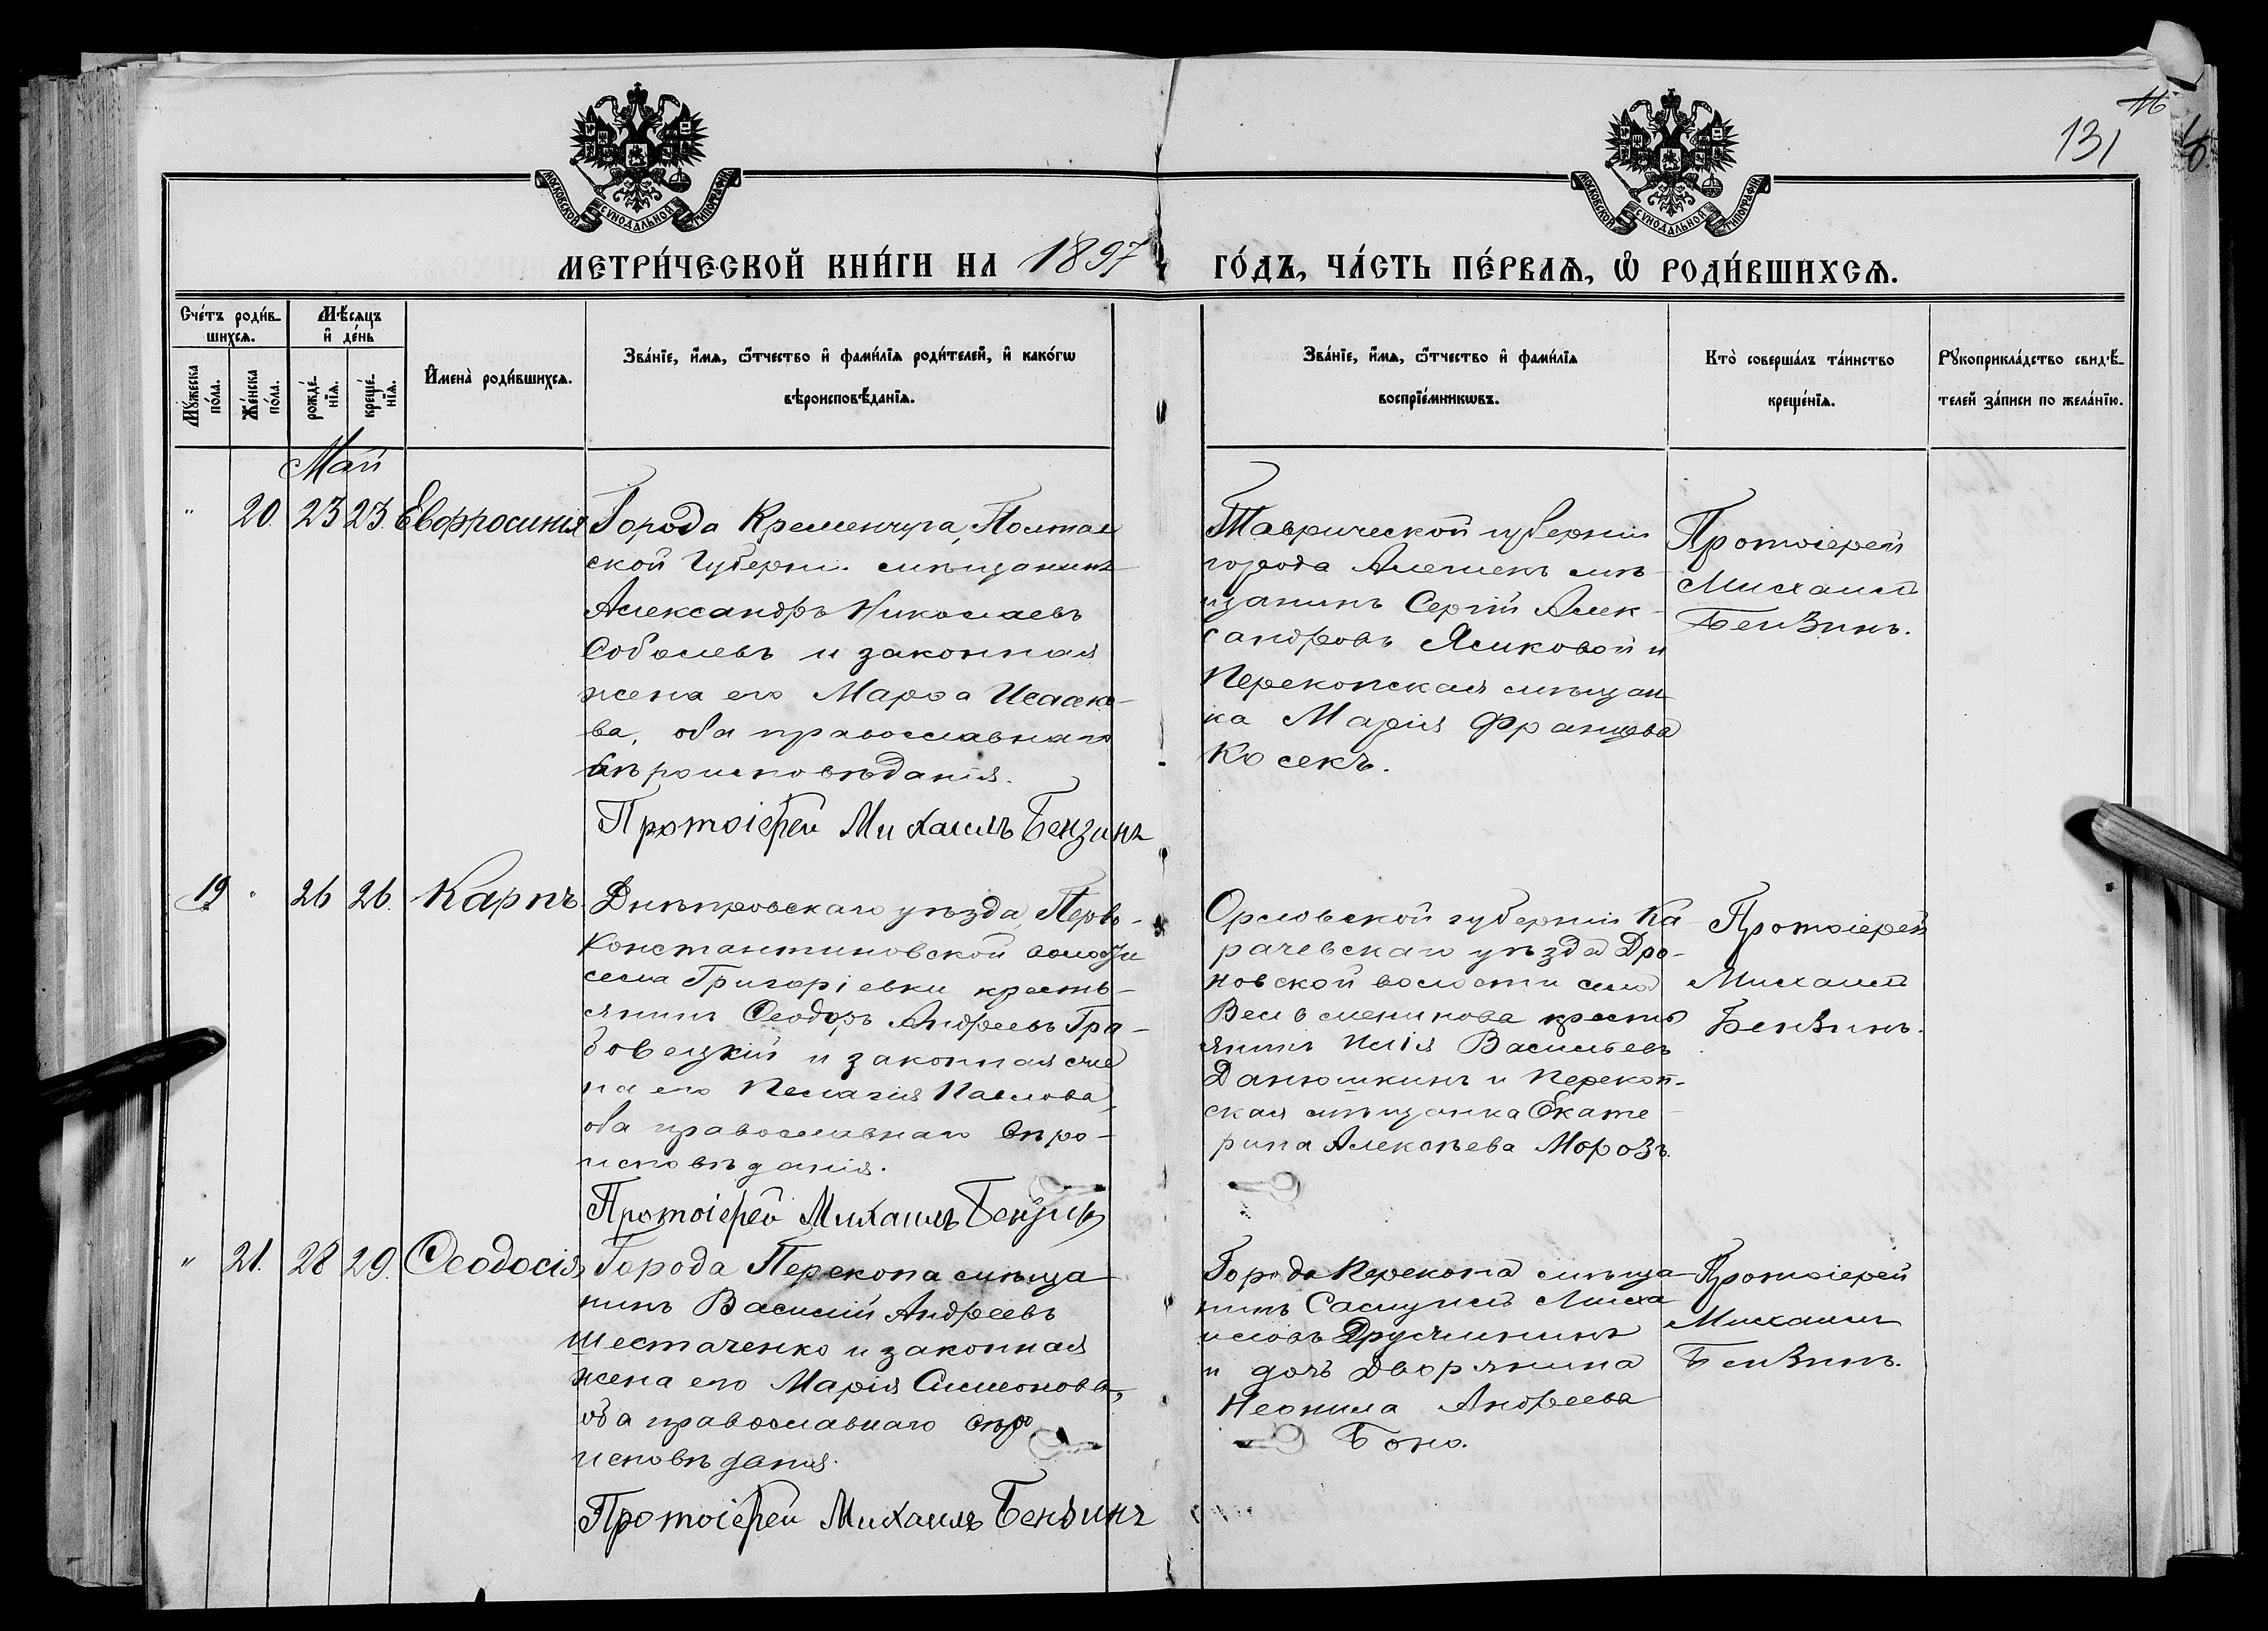 16
131
МОСКОВСКОЙ СѴНОДАЛЬНОЙ ТИПОГРАФІИ
МОСКОВСКОЙ СѴНОДАЛЬНОЙ ТИПОГРАФІИ
МЕТРИ́ЧЕСКОЙ КНИ́ГИ НА 1897 ГО́ДЪ, ЧА́СТЬ ПЕ́РВАѦ, Ѡ҆ РОДИ́ВШИХСѦ.
Сче́тъ роди́в-
шихсѧ.
Мѣ́сѧцъ
и҆ де́нь
Мꙋ́жеска
по́ла.
Же́нска
по́ла.
рожде́-
нїѧ.
креще́-
нїѧ.
И҆мена̀ роди́вшихсѧ.
Зва́нїе, и҆́мѧ, ѻ҆́тчество и҆ фами́лїѧ роди́телей, и҆ како́гѡ
вѣроисповѣ́данїѧ.
Зва́нїе, и҆́мѧ, ѻ҆́тчество и҆ фами́лїѧ
воспрїе́мникѡвъ.
Кто̀ соверша́лъ та́инство
креще́нїѧ.
Рꙋкоприкла́дство свидѣ́-
телей за́писи по жела́нїю.
Май
" 20 23 23. Евфросинія
Города Кременчуга, Полтав
ской Губерніи мѣщанинъ
Александръ Николаевъ
Соболевъ и законная
жена его Марѳа Исаако-
ва, оба православнаго
вѣроисповѣданія.
Протоіерей Михаилъ Бензинъ
Таврической губерніи
города Алешекъ мѣ-
щанинъ Сергій Алек-
сандровъ Ясиковой и
Перекопская мѣщан
ка Марія Францова
Косекъ.
Протоіерей
Михаилъ
Бензинъ.
19 " 26 26. Карпъ
Днѣпровскаго уѣзда, Перво-
Константиновской волости
села Григоріевки кресть-
янинъ Ѳеодоръ Андреевъ Гра-
бовецкій и законная же
на его Пелагія Павлова,
оба православнаго вѣро-
исповѣданія.
Протоіерей Михаилъ Бензинъ
Орловской губерніи Ка-
рачевскаго уѣзда Дро-
новской волости села
кресть
янинъ Илія Васильевъ
Данюшкинъ и Перекоп-
ская мѣщанка Екате-
рина Алексѣева Морозъ.
Протоіерей
Михаилъ
Бензинъ.
" 21. 28 29. Ѳеодосія
Города Перекопа мѣща
нинъ Василій Андреевъ
Шестаченко и законная
жена его Марія Симеонова,
оба православнаго вѣро
исповѣданія.
Протоіерей Михаилъ Бензинъ
Города Перекопа мѣща-
нинъ Самуилъ Миха
иловъ
и дочь дворянина
Неонила Андреева
Боно.
Протоіерей
Михаилъ
Бензинъ.